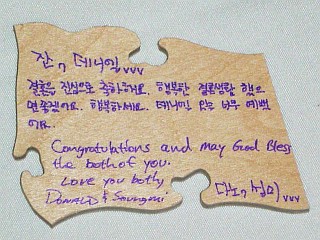 잔, 데니얼 vvv
결혼을 진심으로 축하하거요. 행복한 결혼생활 했으
면 좋겠어요. 행복하세요. 데니얼 오늘 너무 예뻤
어요.
Congratulations and may God Bless
the both of you.
Love you both,
Donald & Seungmi
vvv